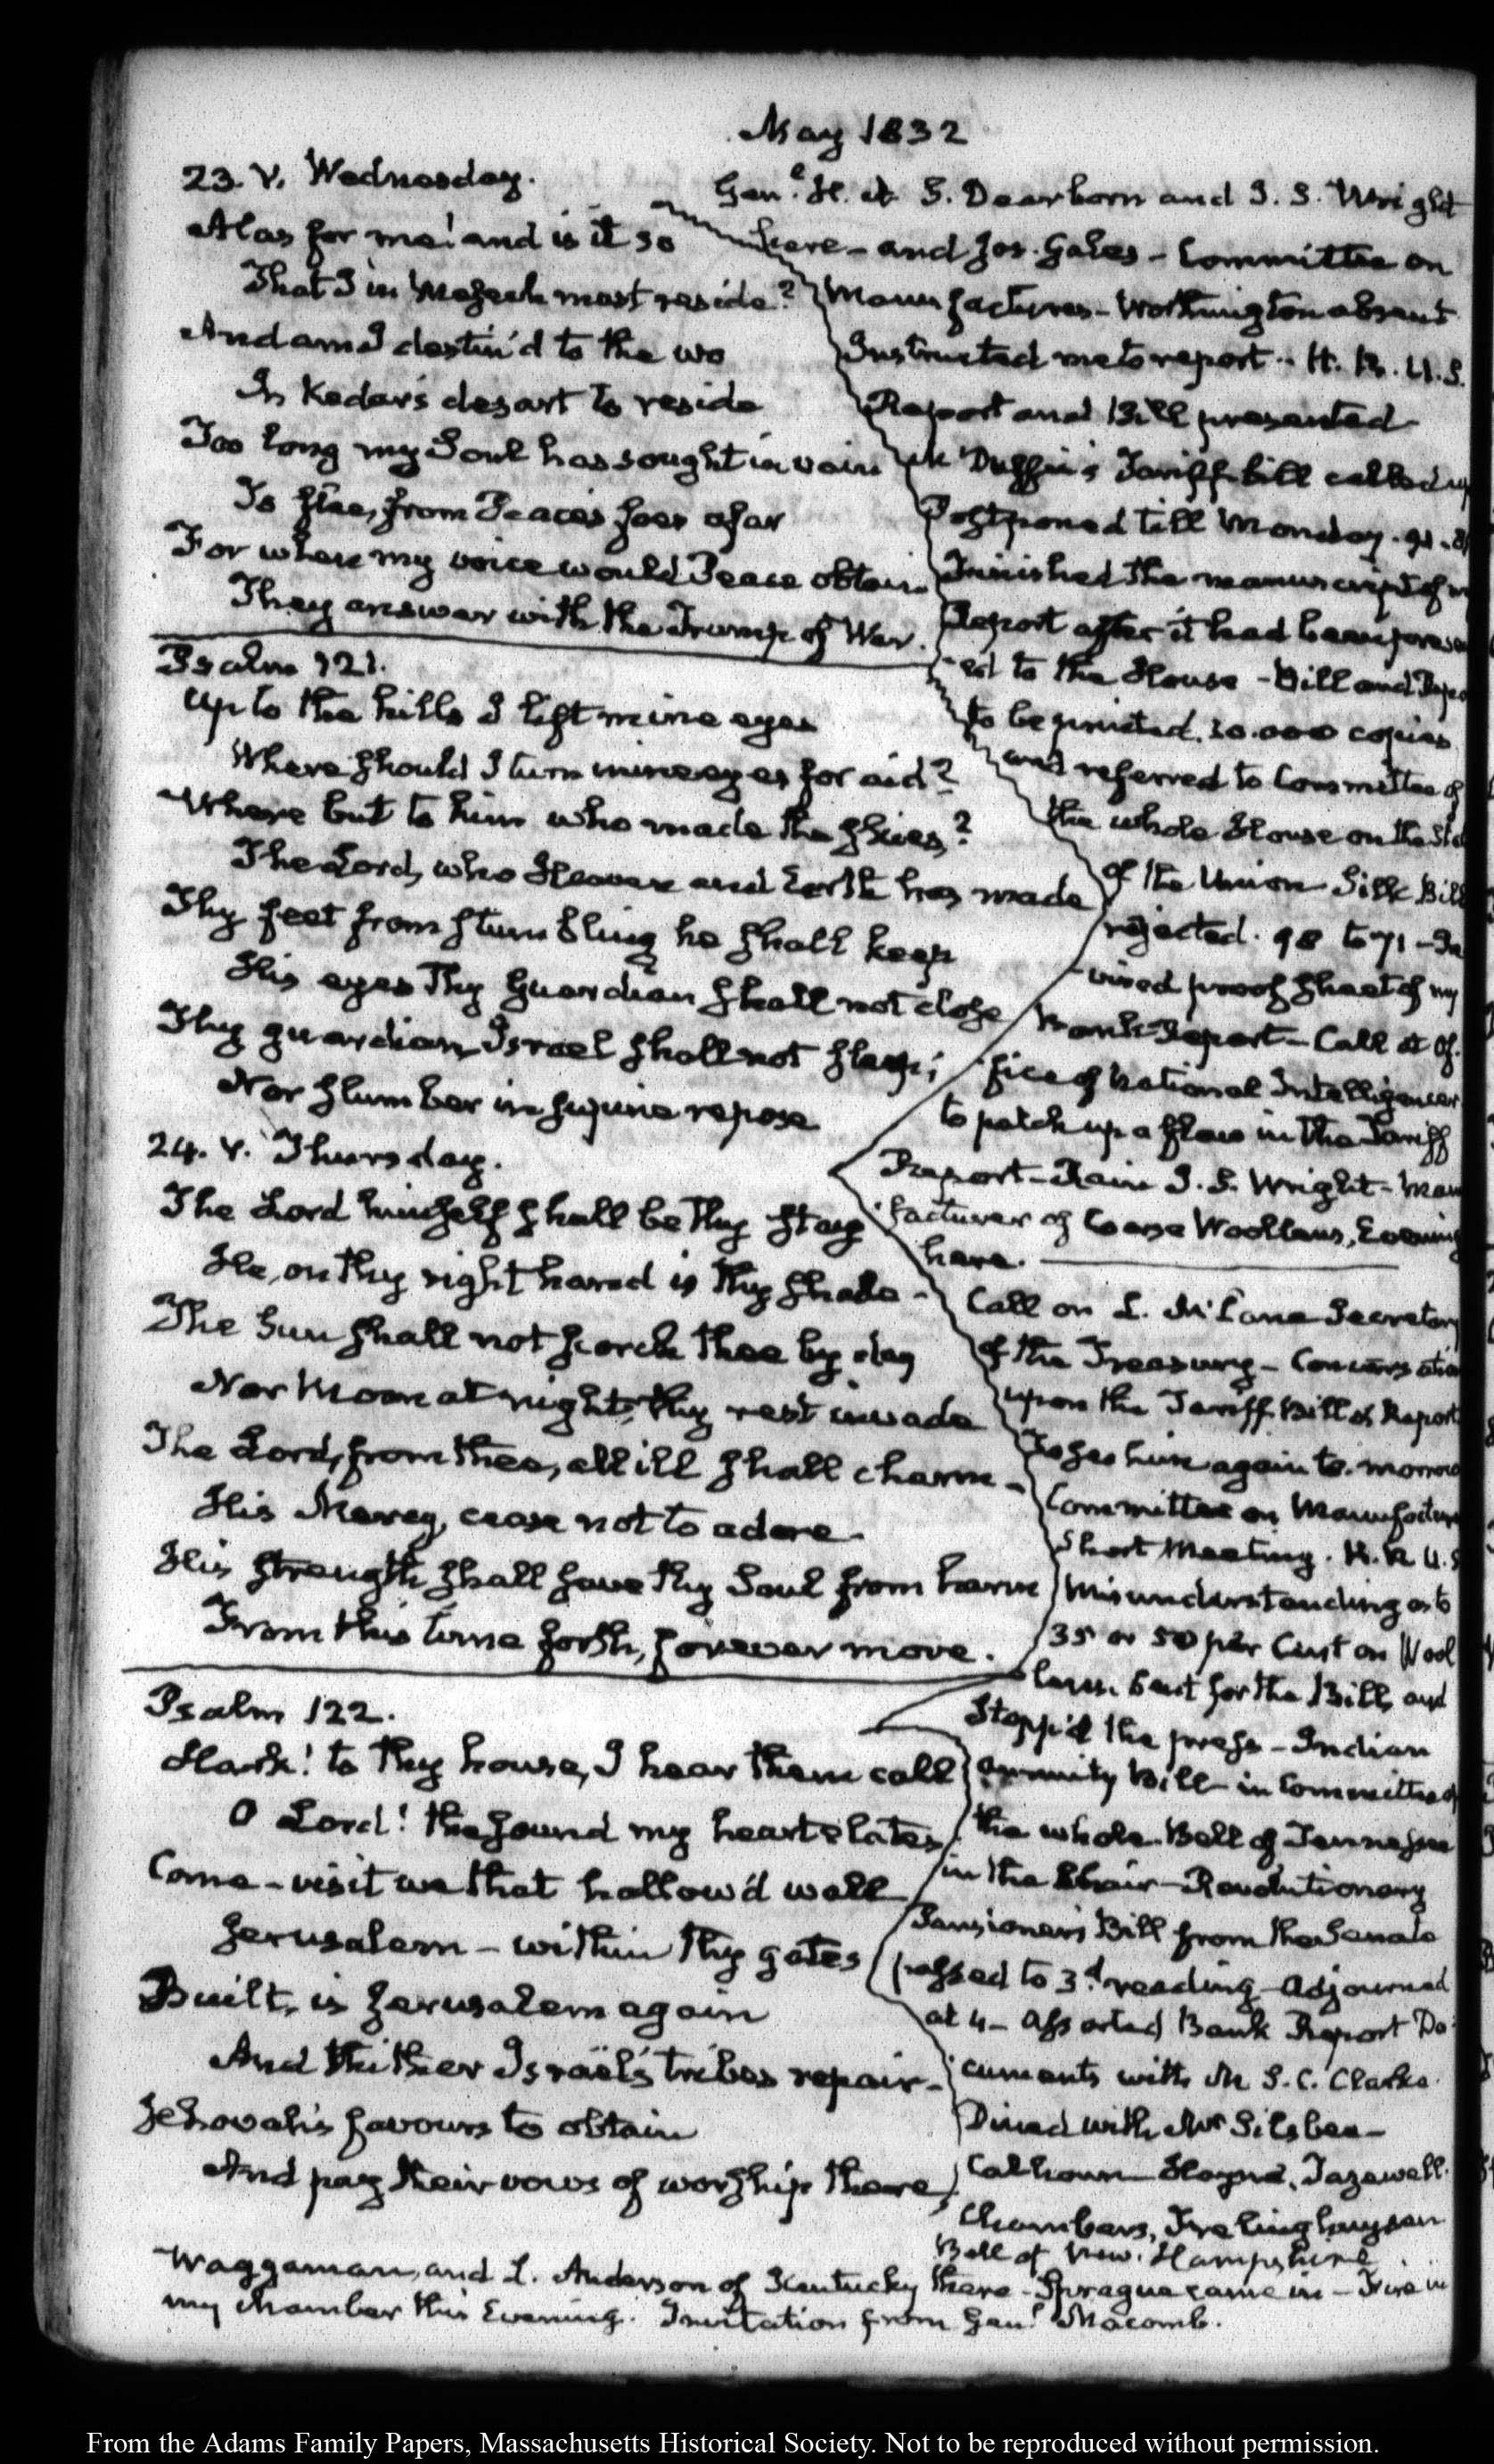 May 1832
23. V. Wednesday.
Alas for me! and is it so
That I in Meshech must reside?
And am I destin'd to the wo
In Kedar's desart to reside
Too long my Soul has sought in vain
To flee, from Peace's foes afar
For when my voice would Peace obtain
They answer with the Trump of War.
Psalm 121.
Up to the hills I lift mine eyes
Where should I turn mine eyes for aid?
Where but to him who made the skies?
The Lord, who Heaven and Earth has made
Thy feet from stumbling he shall keep
His eyes Thy Guardian shall not close
Thy guardian, Israel shall not sleep;
Nor slumber in supine repose
24. V. Thursday.
The Lord himself shall be thy stay
He, on thy right hand is thy shade -
The Sun shall not scorch thee by day
Nor Moon at night, thy rest invade
The Lord, from thee, all ill shall charm -
His Mercy, cease not to adore -
His strength shall save thy Soul from harm
From this time forth, forever more.
Psalm 122.
Hark! to thy house, I hear them call
O Lord! the sound my heart elates
Come - visit we that hallow'd wall
Jerusalem - within thy gates
Built, is Jerusalem again
And thither Israel's tribes repair -
Jehovah's favours to obtain
And pay their vows of worship there
Genl. H. A. S. Dearborn and J. S. Wright
here - and Jos. Gales - Committee on
Manufactures - Worthington absent
Instructed me to report - H. R. U.S.
Report and Bill presented
Mc Duffie's Tariff bill called up
Postponed till Monday. 91 -
Finished the manuscript of
Report after it had been presen
ted to the House - Bill and Repo
to be printed. 10.000 copies
and referred to Committee of
the whole House on the Sta
of the Union Silk Bill
rejected. 98 to 71 - Re
vised proof sheet of my
Bank Report - Call at Of
fice of National Intelligencer
to patch up a flaw in the Tariff
Report - Rain J. S. Wright - Man
facturer of Coarse Woollens, Evening
here.
Call on L. McLane Secretary
of the Treasury - Conversatio
upon the Tariff Bill & Report
To see him again to-morrow
Committee on Manufactur
Short Meeting. H. R. U.S
Misunderstanding as to
35 or 50 per Cent on Wool
lens. Sent for the Bill, and
Stopp'd the press - Indian
Annuity Bill - in Committee of
the whole. Bell of Tennessee
in the Chair - Revolutionary
Pensioners Bill from the Senate
passed to 3d. reading - Adjourned
at 4 - Assorted Bank Report Do
cuments with M S. C. Clarke
Dined with Mr Silsbee -
Calhoun Hayne, Tazewell.
Chambers, Frelinghuysen
Bell of New. Hampshire
Waggaman, and L. Anderson of Kentucky there - Sprague came in - Fire in
my chamber this Evening. Invitation from Genl. Macomb.
From the Adams Family Papers, Massachusetts Historical Society. Not to be reproduced without permission.